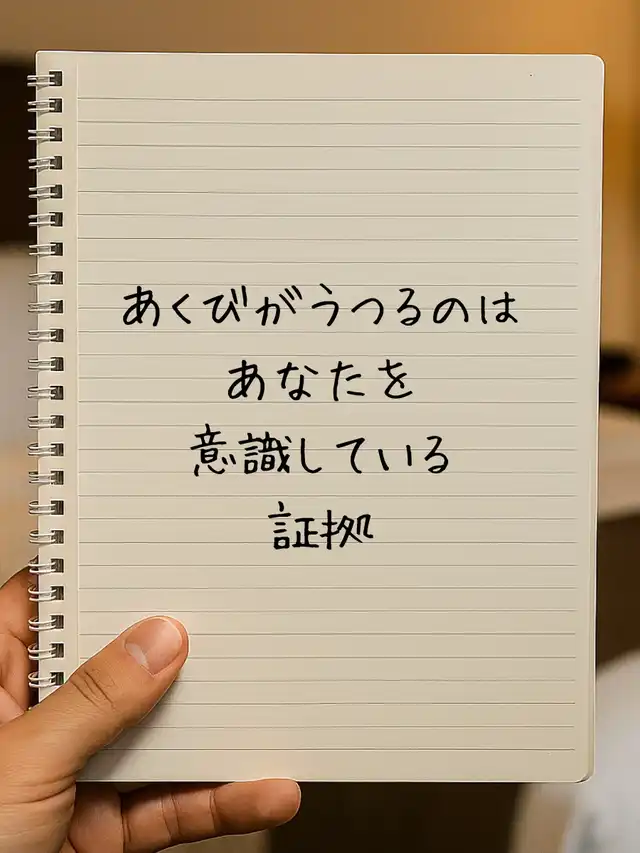 あくびがうつるのは
あなたを
意識している
証拠